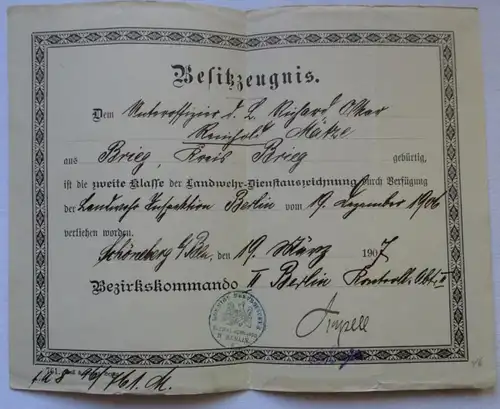 Besitzzeugnis.
Dem Unteroffizier d. L. Richard Oskar
Reinhold Mätze
aus Brieg, Kreis Brieg gebürtig,
ist die zweite Klasse der Landwehr-Dienstauszeichnung durch Verfügung
der Landwehr Inspektion Berlin vom 19. Dezember 1906
verliehen worden.
Schöneberg b/Bln., den 19. März 1907
Bezirkskommando II Berlin Kontroll-Abt. II
II BERLIN